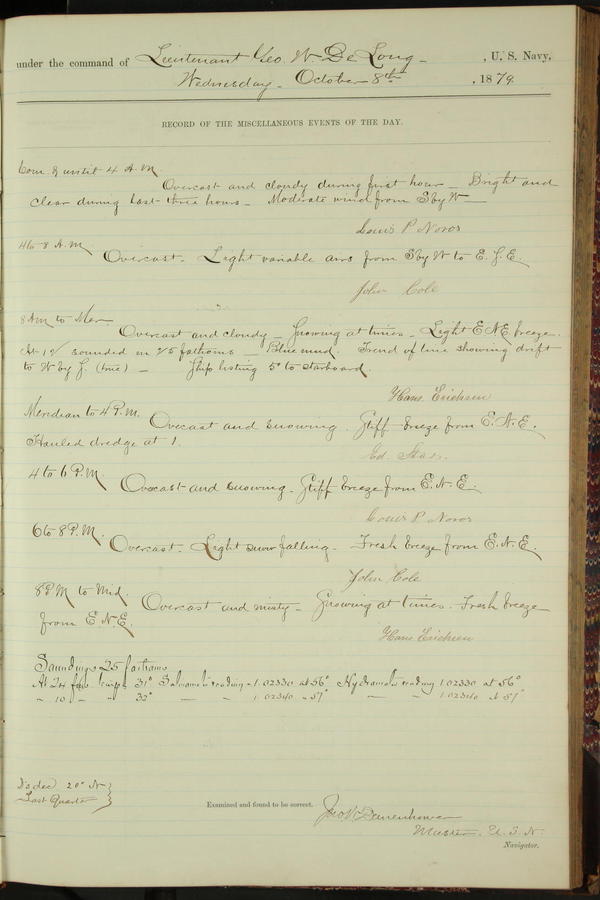 under the command of Lieutenant Geo. W De Long , U. S. Navy,
Wednesday October 8th , 1879.
RECORD OF THE MISCELLANEOUS EVENTS OF THE DAY.
Com. & until 4 A.M.
Overcast and cloudy during first hour - Bright and
clear during last three hours - Moderate wind from S by W
Louis P Noros
4 to 8 A.M. Overcast. Light variable airs from S by W to E. S. E.
John Cole
8 AM to Mer. Overcast and cloudy - Snowing at times - Light E N E breeze.
At sounded in 25 fathoms - Blue mud. Trend of line showing drift
to W by S. (true) - Ship listing 5° to starboard.
Hans Erichsen
Meridian to 4 P.M. Overcast and snowing. Stiff breeze from E. N. E.
Hauled dredge at 1.
Ed. Starr.
4 to 6 P.M. Overcast and snowing - Stiff breeze from E. N. E.
Louis P Noros
6 to 8 P.M. Overcast - Light snow falling - Fresh breeze from E. N. E.
John Cole
8 P.M to Mid. Overcast and misty - Snowing at times. Fresh breeze
from E N. E.
Hans Erichsen
Soundings 25 fathoms
At 24 fms temp. 31° Salinometer reading 1.02330 at 56° Hydrometer reading 1.02330 at 56°
" 10 " " 30° 1.02340 " 57° 1.02340 at 57°
Ds dec 20° N
Last Quarter
Examined and found to be correct. Jno W Danenhower
Master, U. S. N.
Navigator.